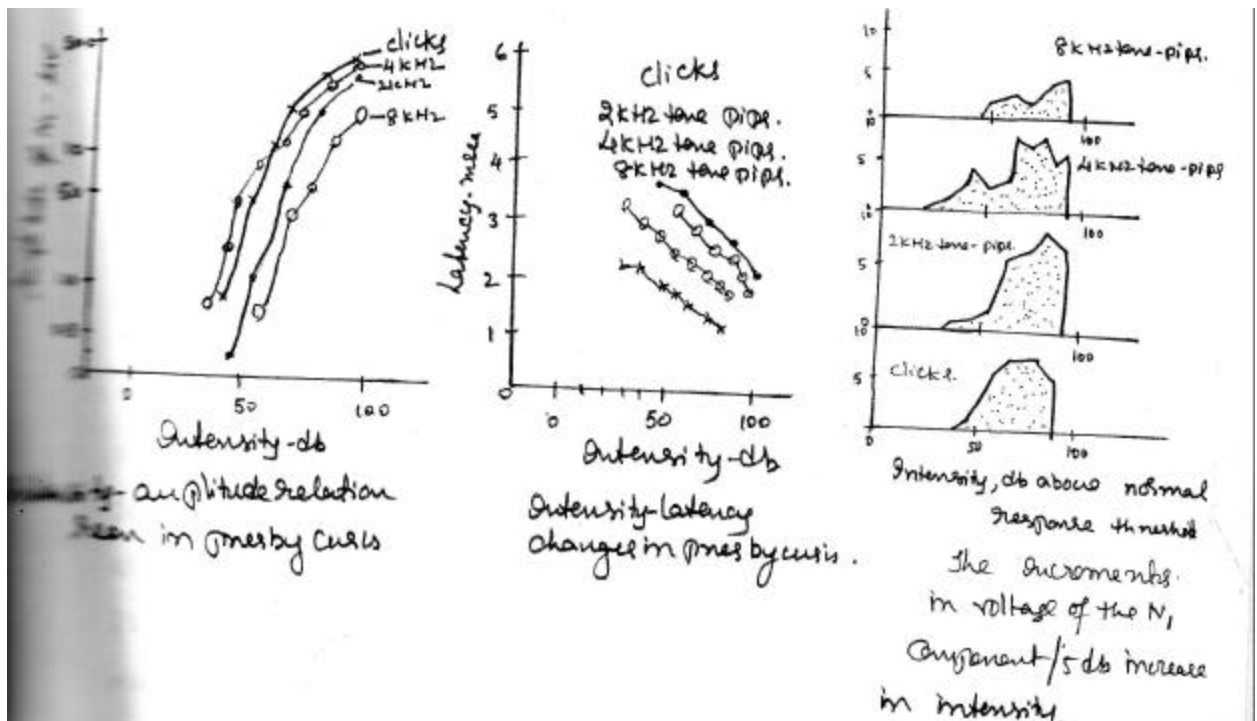 clicks
4KHz
2KHz
8KHz
0
50
100
Intensity-db
amplitude relation
Seen in presbycusis
6
5
4
3
2
1
0
Latency-msec
clicks
2KHz tone pips.
4KHz tone pips.
8KHz tone pips.
0
50
100
Intensity-db
Intensity-latency
changes in presbycusis.
10
5
0
8KHz tone-pips.
100
10
5
0
4KHz tone-pips
100
10
5
0
2KHz tone-pips.
100
10
5
0
clicks.
50
100
Intensity, db above normal
response threshold
The increments
in voltage of the N1
Component/5 db increase
in intensity